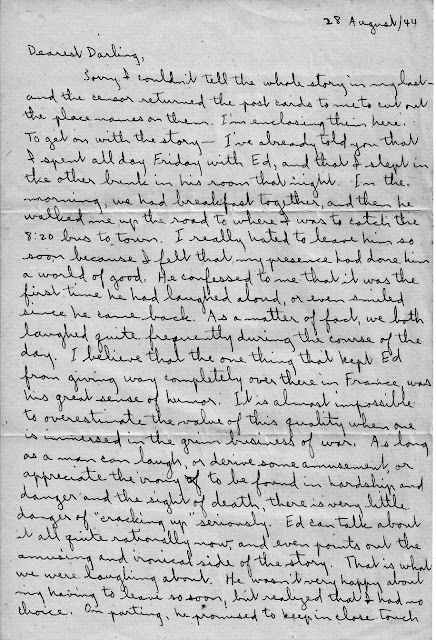 28 August/44
Dearest Darling,
Sorry I couldn't tell the whole story in my last—
and the censor returned the post cards to me to cut out
the place names on them. I'm enclosing them here.
To get on with the story— I've already told you that
I spent all day Friday with Ed, and that I slept in
the other bunk in his room that night. In the
morning, we had breakfast together, and then he
walked me up the road to where I was to catch the
8:20 bus to town. I really hated to leave him so
soon because I felt that my presence had done him
a world of good. He confessed to me that it was the
first time he had laughed aloud, or even smiled
since he came back. As a matter of fact, we both
laughed quite frequently during the course of the
day. I believe that the one thing that kept Ed
from giving way completely over there in France, was
his great sense of humor. It is almost impossible
to overestimate the value of this quality when one
is immersed in the grim business of war. As long
as a man can laugh, or derive some amusement, or
appreciate the irony to be found in hardship and
danger and the sight of death, there is very little
danger of "cracking up" seriously. Ed can talk about
it all quite rationally now, and even points out the
amusing and ironical side of the story. That is what
we were laughing about. He wasn't very happy about
my having to leave so soon, but realized that I had no
choice. On parting, he promised to keep in close touch